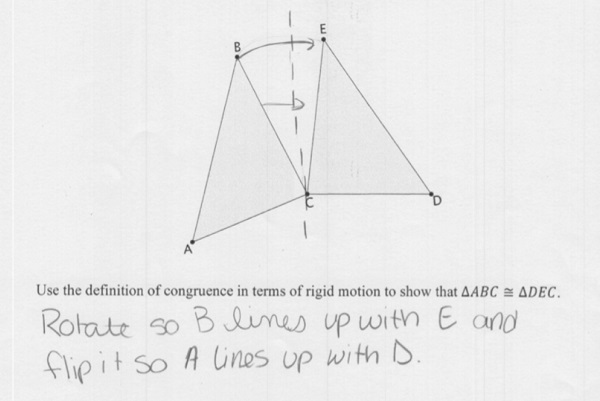 E
B
C
D
A
Use the definition of congruence in terms of rigid motion to show that ΔABC ≅ ΔDEC.
Rotate so B lines up with E and
flip it so A lines up with D.